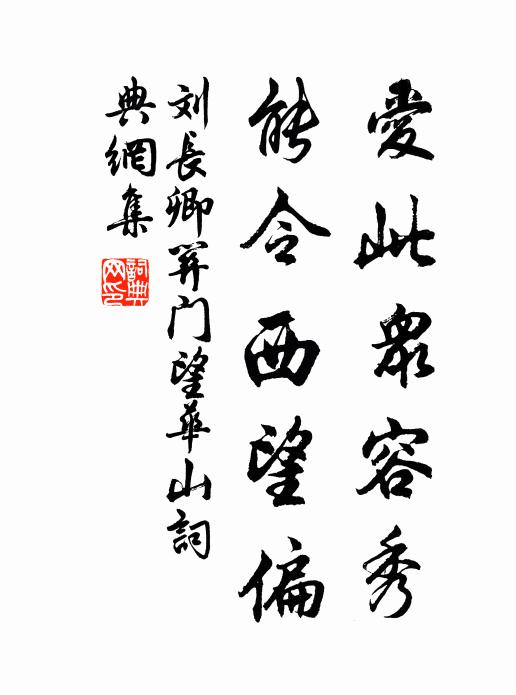 愛此眾容秀
能令西望偏
刘長卿關門望華山詞
典網集
詞典網印